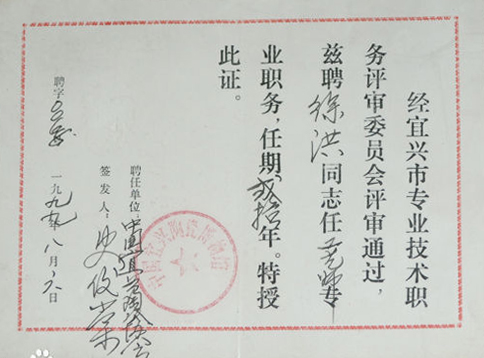 经宜兴市专业技术职
务评审委员会评审通过，
兹聘徐洪同志任艺师专
业职务，任期拾年。特授
此证。
聘任单位：中国宜兴陶瓷
签发人：史俊棠
聘字
一九九九年八月六日